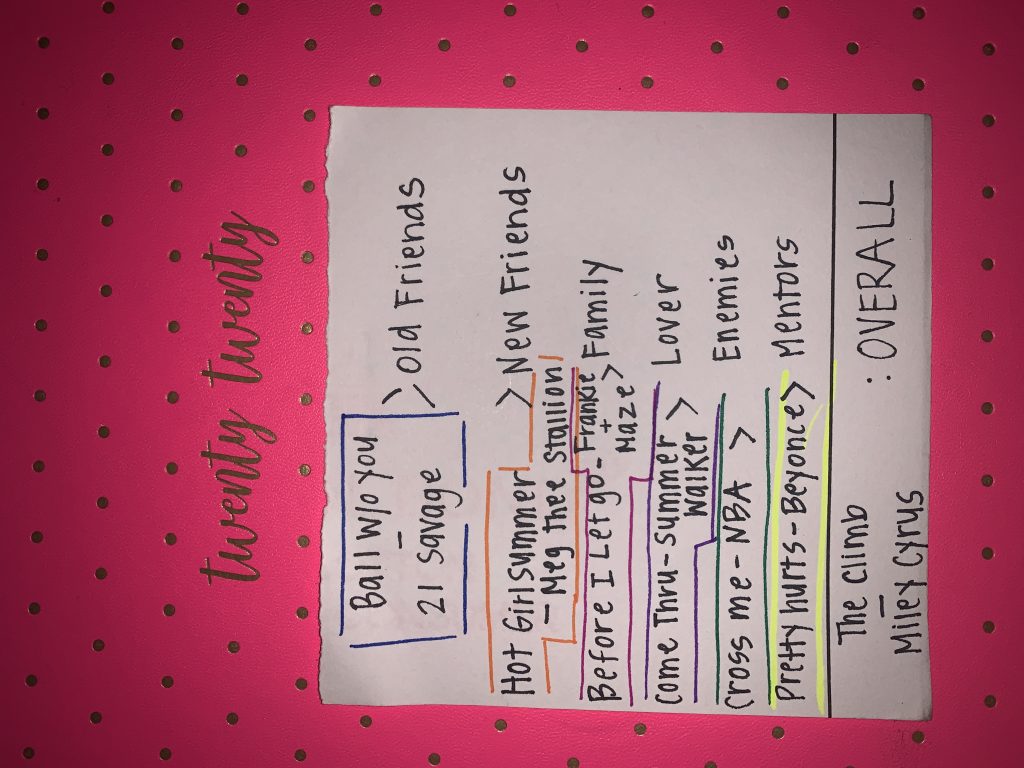 twenty twenty
Ball w/o you
-
21 Savage
> Old Friends
Hot Girl Summer
- Meg thee Stallion
> New Friends
Before I Let go - Frankie
+
Maze > Family
Come Thru - Summer
Walker > Lover
Cross me - NBA > Enemies
Pretty hurts - Beyonce > Mentors
The Climb
-
Miley Cyrus
: OVERALL